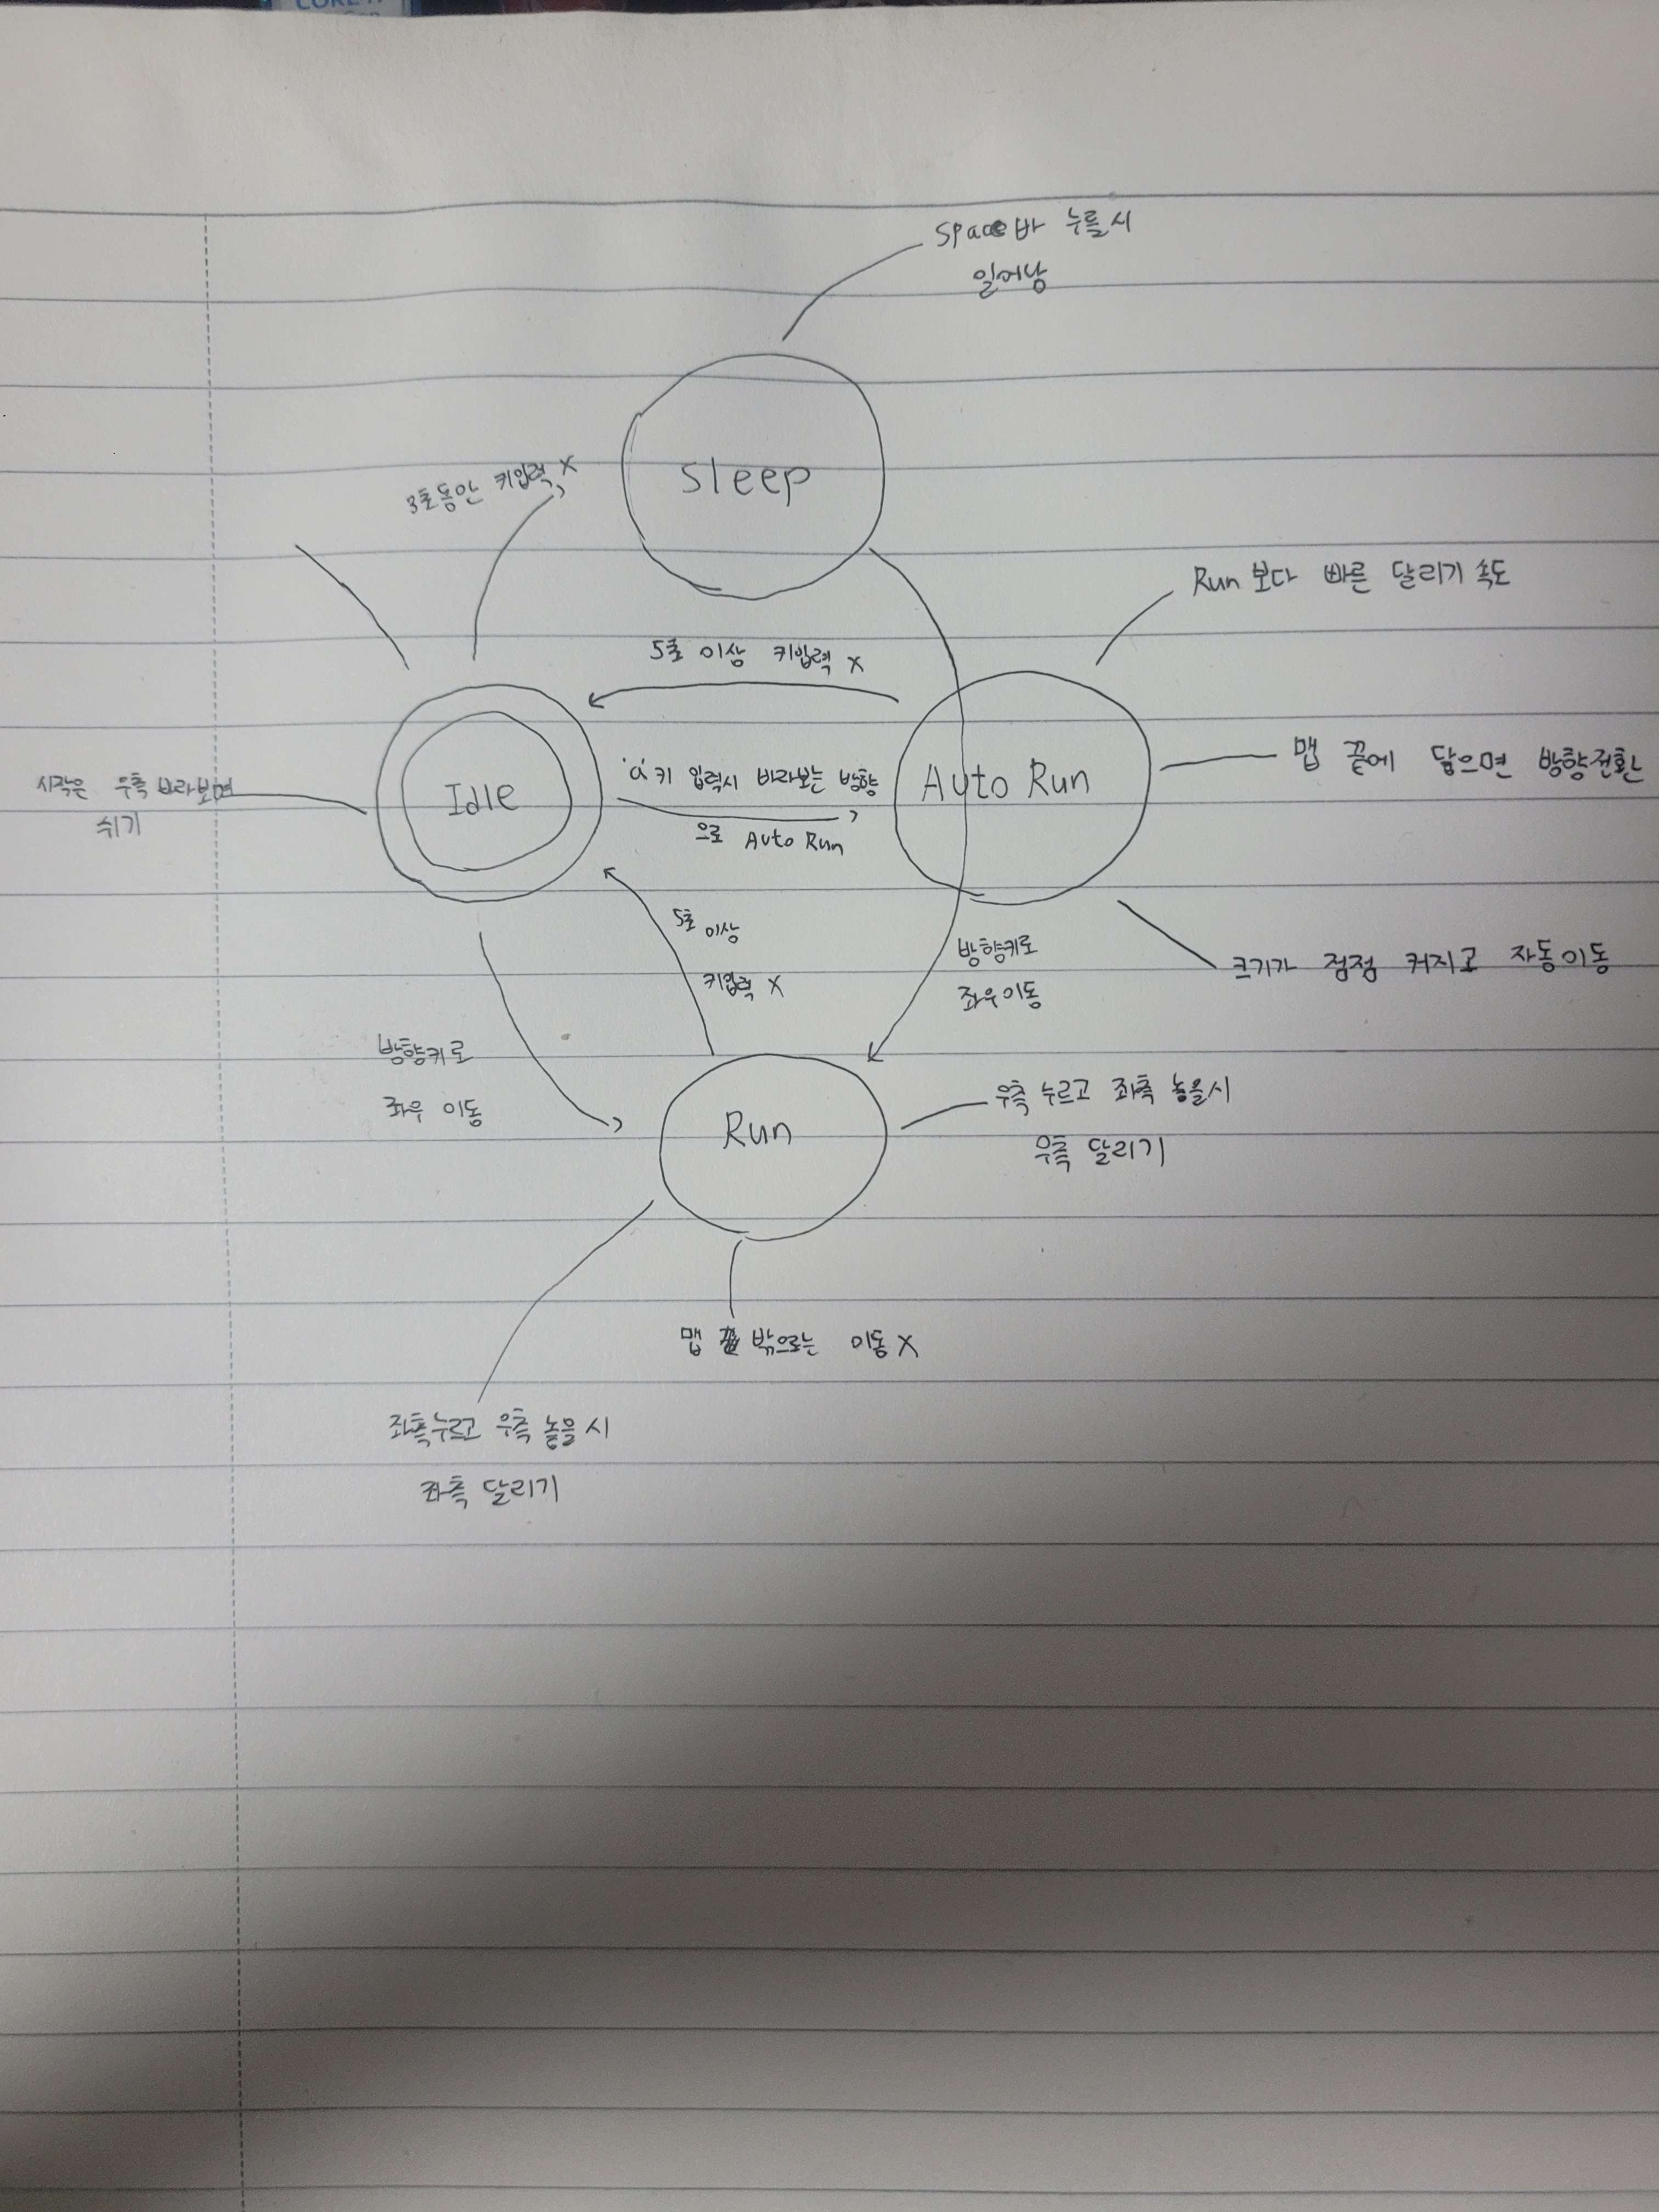 CORE
Space바 누를시
일어남
Sleep
3초동안 키입력 X
Run 보다 빠른 달리기 속도
5초 이상 키입력 X
Idle
시작은 우측 바라보면
쉬기
'a'키 입력시 바라보는 방향
으로 Auto Run
Auto Run
맵 끝에 닿으면 방향전환
5초 이상
키입력 X
방향키로
좌우이동
크기가 점점 커지고 자동이동
방향키로
좌우 이동
Run
우측 누르고 좌측 놓을시
우측 달리기
맵 밖으로는 이동 X
좌측누르고 우측 놓을시
좌측 달리기